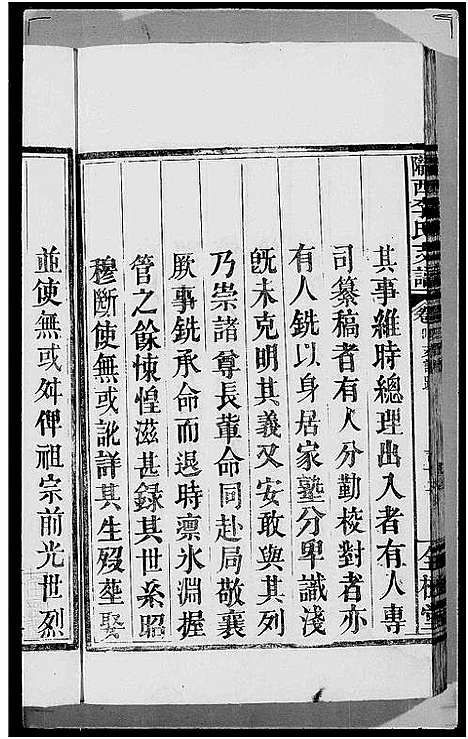 其事維時總理出入者有人專
司纂稿者有人分勤校對者亦
有人銑以身居家塾分卑識淺
旣未克明其義又安敢與其列
乃崇諸尊長軰命同赴局敬襄
厥事銑承命而退時凛氷淵握
管之餘悚惶滋甚録其世系昭
穆斷使無或訛詳其生殁塟娶
並使無或舛俾祖宗前光世烈
隴西李氏
卷